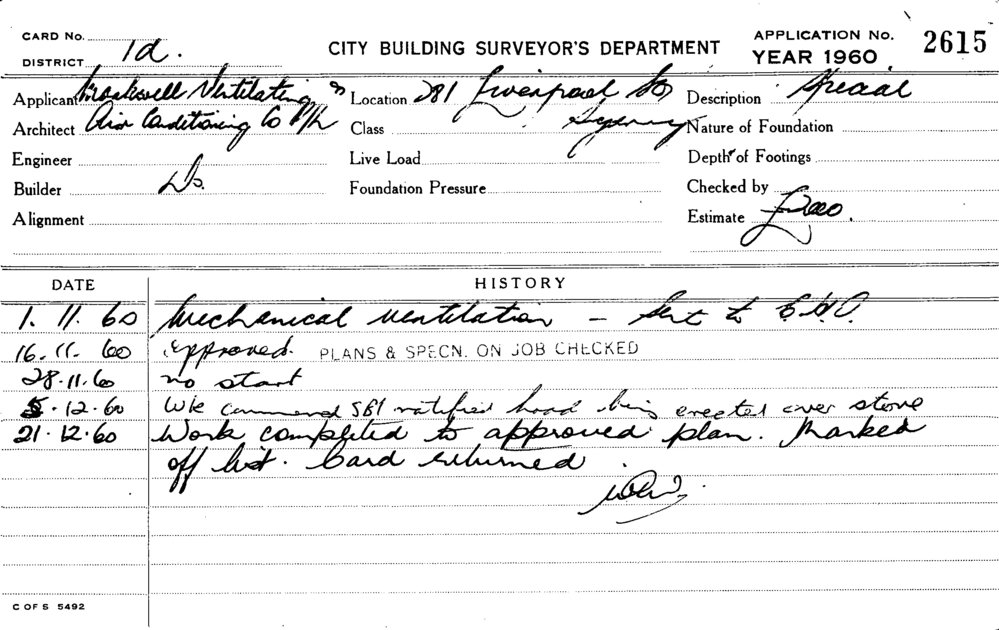 CARD No.
DISTRICT 1d.
CITY BUILDING SURVEYOR'S DEPARTMENT
APPLICATION No. 2615
YEAR 1960
Applicant Brookswell Ventilating &
Architect Air Conditioning Co P/L
Engineer
Builder Do.
Alignment
Location 281 Liverpool St
Sydney
Class
Live Load
Foundation Pressure
Description Special
Nature of Foundation
Depth of Footings
Checked by
Estimate
DATE HISTORY
1. 11. 60 Mechanical ventilation - Sent to C.H.O.
16. 11. 60 Approved. PLANS & SPECN. ON JOB CHECKED
28.11.60 no start
5.12.60 Wk commenced SBI notified hood being erected over stove
21.12.60 Work completed to approved plan. Marked
off list. Card returned.
C OF S 5492